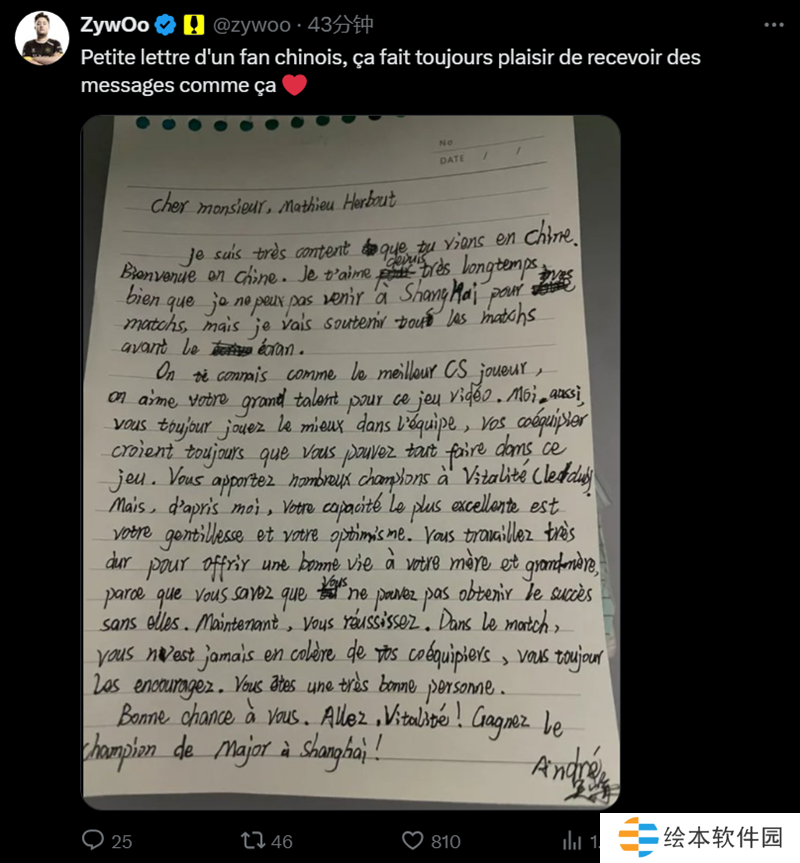 ZywOo @zywoo · 43分钟
Petite lettre d'un fan chinois, ça fait toujours plaisir de recevoir des
messages comme ça ❤️
No
DATE / /
Cher monsieur, Mathieu Herbaut
Je suis très content que tu viens en Chine.
Bienvenue en Chine. Je t'aime depuis très longtemps,
bien que je ne peux pas venir à ShangHai pour
matchs, mais je vais soutenir tous les matchs
avant le écran.
On te connais comme le meilleur CS joueur,
on aime votre grand talent pour ce jeu vidéo. Moi aussi,
vous toujour jouez le mieux dans l'équipe, vos coéquipier
croient toujours que vous pouvez tout faire dans ce
jeu. Vous apportez nombreux champions à Vitalité
Mais, d'apris moi, votre capacité le plus excellente est
votre gentillesse et votre optimisme. Vous travaillez très
dur pour offrir une bonne vie à votre mère et grand-mère,
parce que vous savez que vous ne pouvez pas obtenir le succès
sans elles. Maintenant, vous réussissez. Dans le match,
vous n'est jamais en colère de vos coéquipiers, vous toujour
les encouragez. Vous êtes une très bonne personne.
Bonne chance à vous. Allez, Vitalité! Gagnez le
champion de Major à Shanghai!
André
25 46 810 1.
绘本软件园